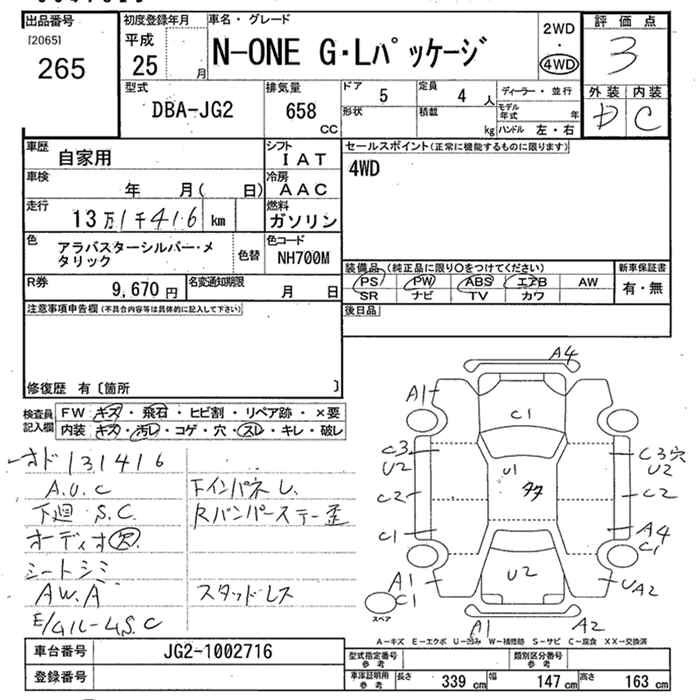 出品番号
[2065]
265
初度登録年月
平成
25 月
車名・グレード
N-ONE G・Lパッケージ
2WD
・
4WD
評価点
3
外装 内装
D C
型式
DBA-JG2
排気量
658
CC
ドア
5
定員
4 人
形状
積載
kg
ディーラー・並行
モデル年式 年
ハンドル 左・右
車歴
自家用
シフト
IAT
車検
年 月( 日)
冷房
AAC
走行
13万1千416 km
燃料
ガソリン
色
アラバスターシルバー・メタリック
色替
色コード
NH700M
R券
9,670 円
名変通知期限
月 日
セールスポイント(正常に機能するものに限ります)
4WD
装備品 (純正品に限り○をつけてください)
PS PW ABS エアB AW
SR ナビ TV カワ
新車保証書
有・無
後日品
注意事項申告欄(不具合内容等は具体的に記入して下さい)
修復歴 有〔箇所 〕
検査員記入欄
FW キズ・飛石・ヒビ割・リペア跡・×要
内装 キズ・汚レ・コゲ・穴・スレ・キレ・破レ
オド131416
A.U.C
下廻 S.C.
オーディオ欠
シートシミ
AW.A
FインパネU.
Rバンパーステー歪
スタッドレス
A4
A1
C1
C3
U2
C3穴
U2
U1
C2
C2
C1
A4
C1
A1
C1
U2
UA2
A1
A2
スペア
A-キズ E-エクボ U-凹み W-補修跡 S-サビ C-腐食 XX-交換済
車台番号
JG2-1002716
登録番号
型式指定番号
参考
類別区分番号
参考
車庫証明用
参考
長さ 339 cm
幅 147 cm
高さ 163 cm